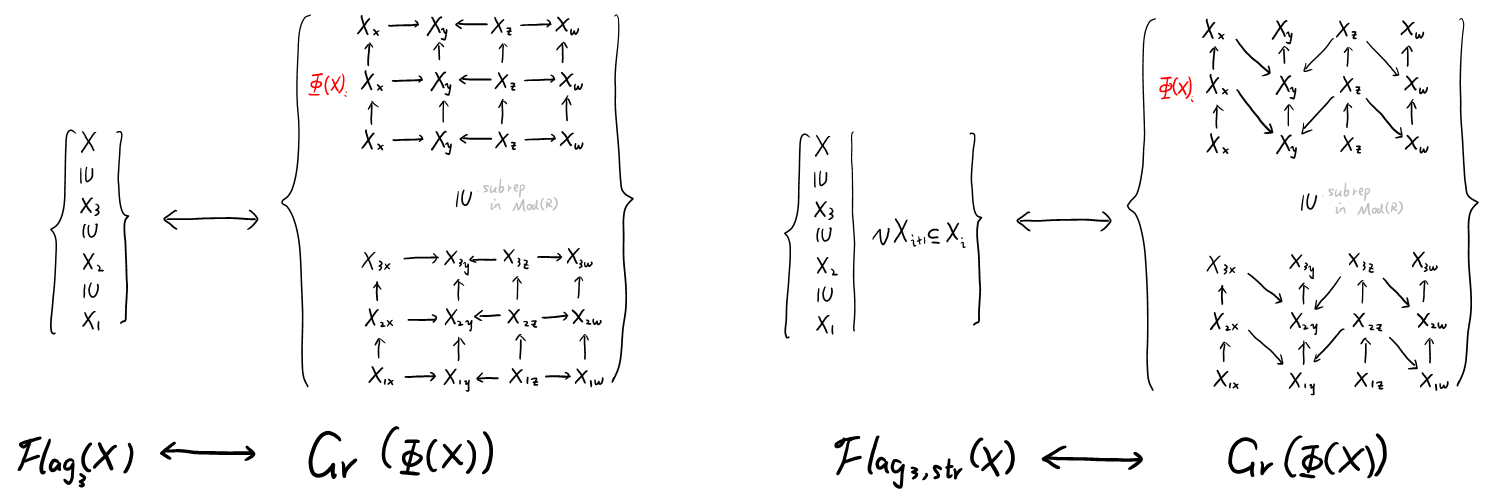 X_x → X_y ← X_z → X_w
↑ ↑ ↑ ↑
Φ(X): X_x → X_y ← X_z → X_w
↑ ↑ ↑ ↑
X_x → X_y ← X_z → X_w
X
IU
X_3
IU
X_2
IU
X_1
IU subrep
in Mod(R)
X_{3x} → X_{3y} ← X_{3z} → X_{3w}
↑ ↑ ↑ ↑
X_{2x} → X_{2y} ← X_{2z} → X_{2w}
↑ ↑ ↑ ↑
X_{1x} → X_{1y} ← X_{1z} → X_{1w}
Flag_3(X) ↔ Gr(Φ(X))
X_x X_y X_z X_w
↑ ↑ ↑ ↑
Φ(X): X_x X_y X_z X_w
↑ ↑ ↑ ↑
X_x X_y X_z X_w
X
IU
X_3
IU
X_2
IU
X_1
νX_{i+1} ⊆ X_i
IU subrep
in Mod(R)
X_{3x} X_{3y} X_{3z} X_{3w}
↑ ↑ ↑ ↑
X_{2x} X_{2y} X_{2z} X_{2w}
↑ ↑ ↑ ↑
X_{1x} X_{1y} X_{1z} X_{1w}
Flag_{3,str}(X) ↔ Gr(Φ(X))